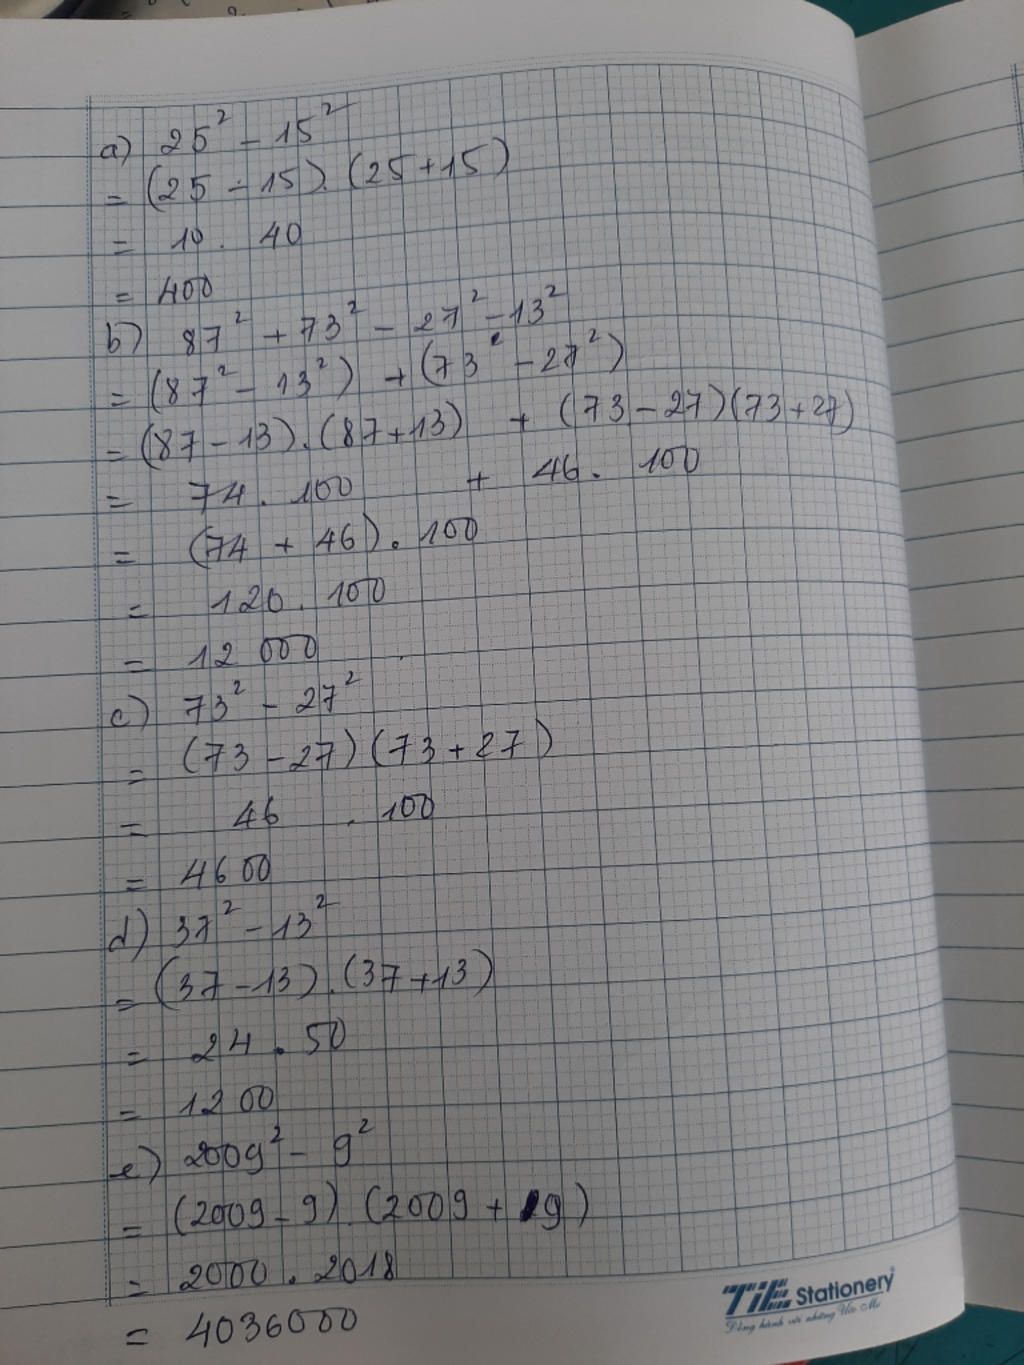 a) 25² - 15²
= (25 - 15).(25+15)
= 10 . 40
= 400
b) 87² + 73² - 27² - 13²
= (87² - 13²) + (73² - 27²)
= (87-13).(87+13) + (73-27)(73+27)
= 74 . 100 + 46. 100
= (74 + 46). 100
= 120. 100
= 12 000
c) 73² - 27²
= (73-27)(73+27)
= 46 . 100
= 4600
d) 37² - 13²
= (37-13).(37+13)
= 24 . 50
= 1200
e) 2009² - 9²
= (2009-9).(2009+9)
= 2000 . 2018
= 4036000
TiE Stationery
Đồng hành với những Ước Mơ